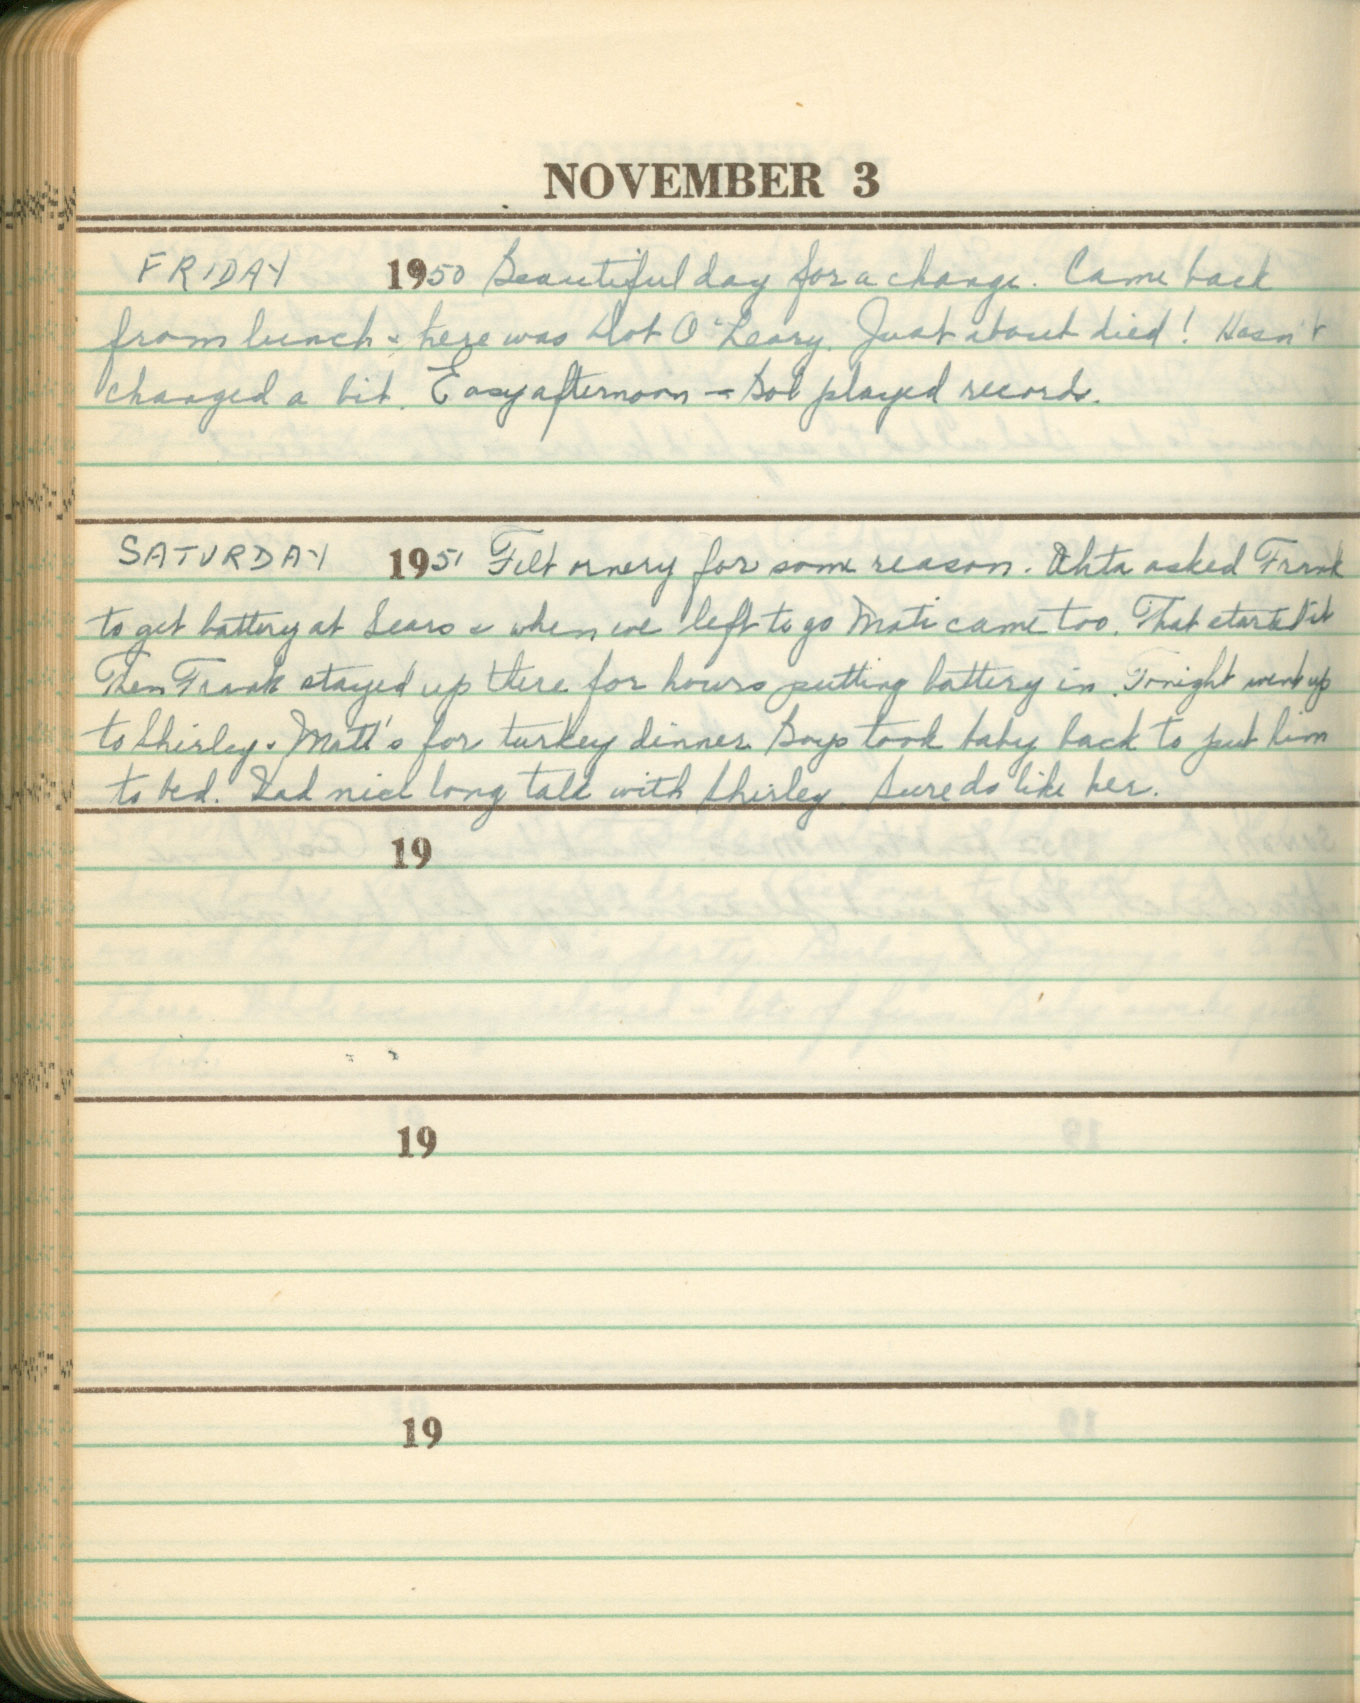 NOVEMBER 3
FRIDAY 1950 Beautiful day for a change. Came back
from lunch & here was Dot O'Leary. Just about died! Hasn't
changed a bit. Easy afternoon — Bob played records.
SATURDAY 1951 Felt ornery for some reason. asked Frank
to get battery at Sears & when we left to go Mati came too. That started it
Then Frank stayed up there for hours putting battery in. Tonight went up
to Shirley & Matt's for turkey dinner. Boys took baby back to put him
to bed. Had nice long talk with Shirley. Sure do like her.
19
19
19